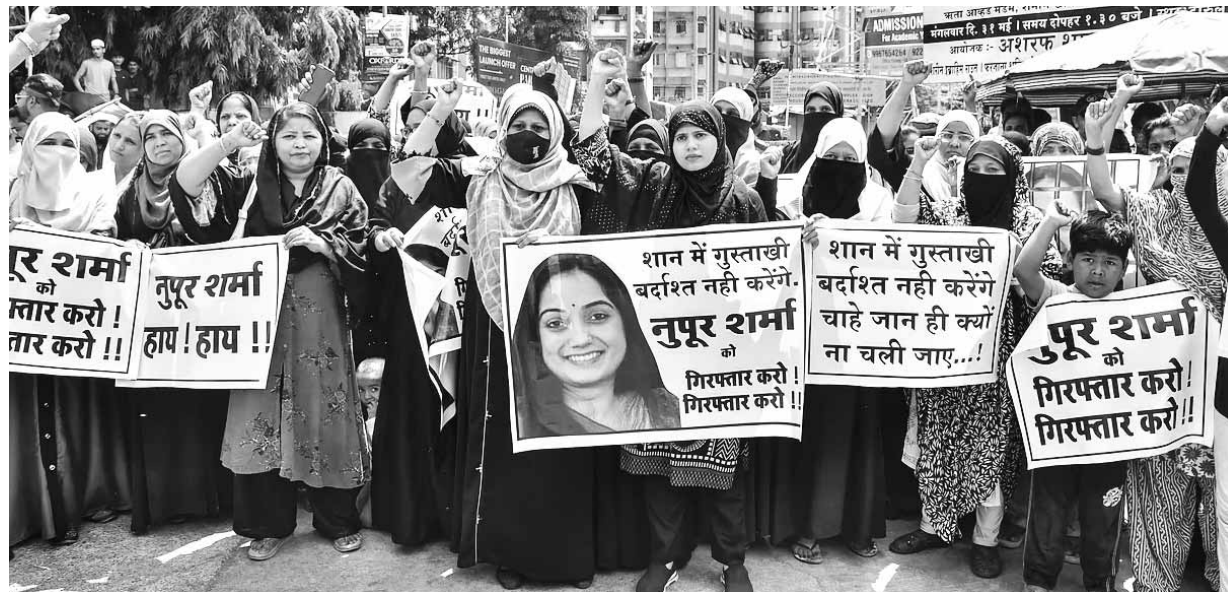 THE BIGGEST
LAUNCH OFFER
ADMISSION
For Academic
मंगलवार दि. ३१ मई । समय दोपहर १.३० बजे ।
आयोजक :- अशरफ
पूर शर्मा
को
फ्तार करो !
फ्तार करो !!
नुपूर शर्मा
हाय ! हाय !!
शान में गुस्ताखी
बर्दाश्त नही करेंगे.
नुपूर शर्मा
को
गिरफ्तार करो !
गिरफ्तार करो !!
शान में गुस्ताखी
बर्दाश्त नही करेंगे
चाहे जान ही क्यों
ना चली जाए...!
नुपूर शर्मा
को
गिरफ्तार करो !
गिरफ्तार करो !!